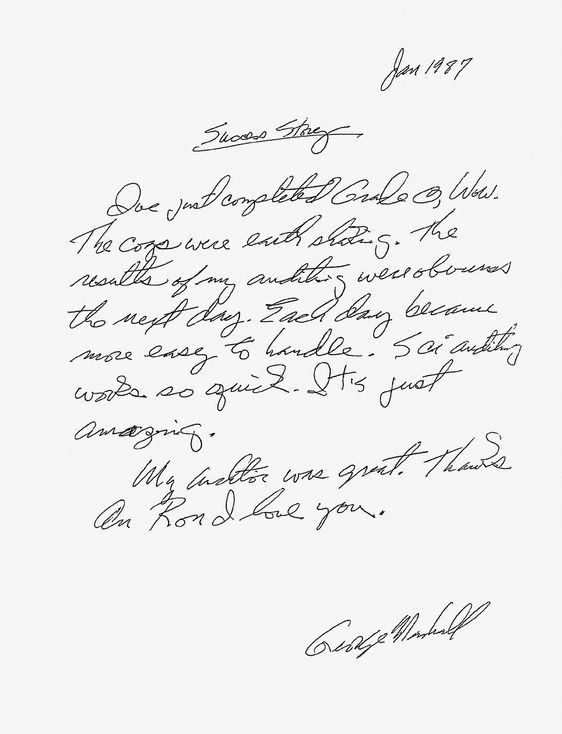 Jan 1987
Success Story
I've just completed Grade 0, Wow.
The cogs were earth shaking. The
results of my auditing were obvious
the next day. Each day became
more easy to handle. Sci auditing
works so quick. It's just
amazing.
My auditor was great. Thanks
Ron I love you.
George